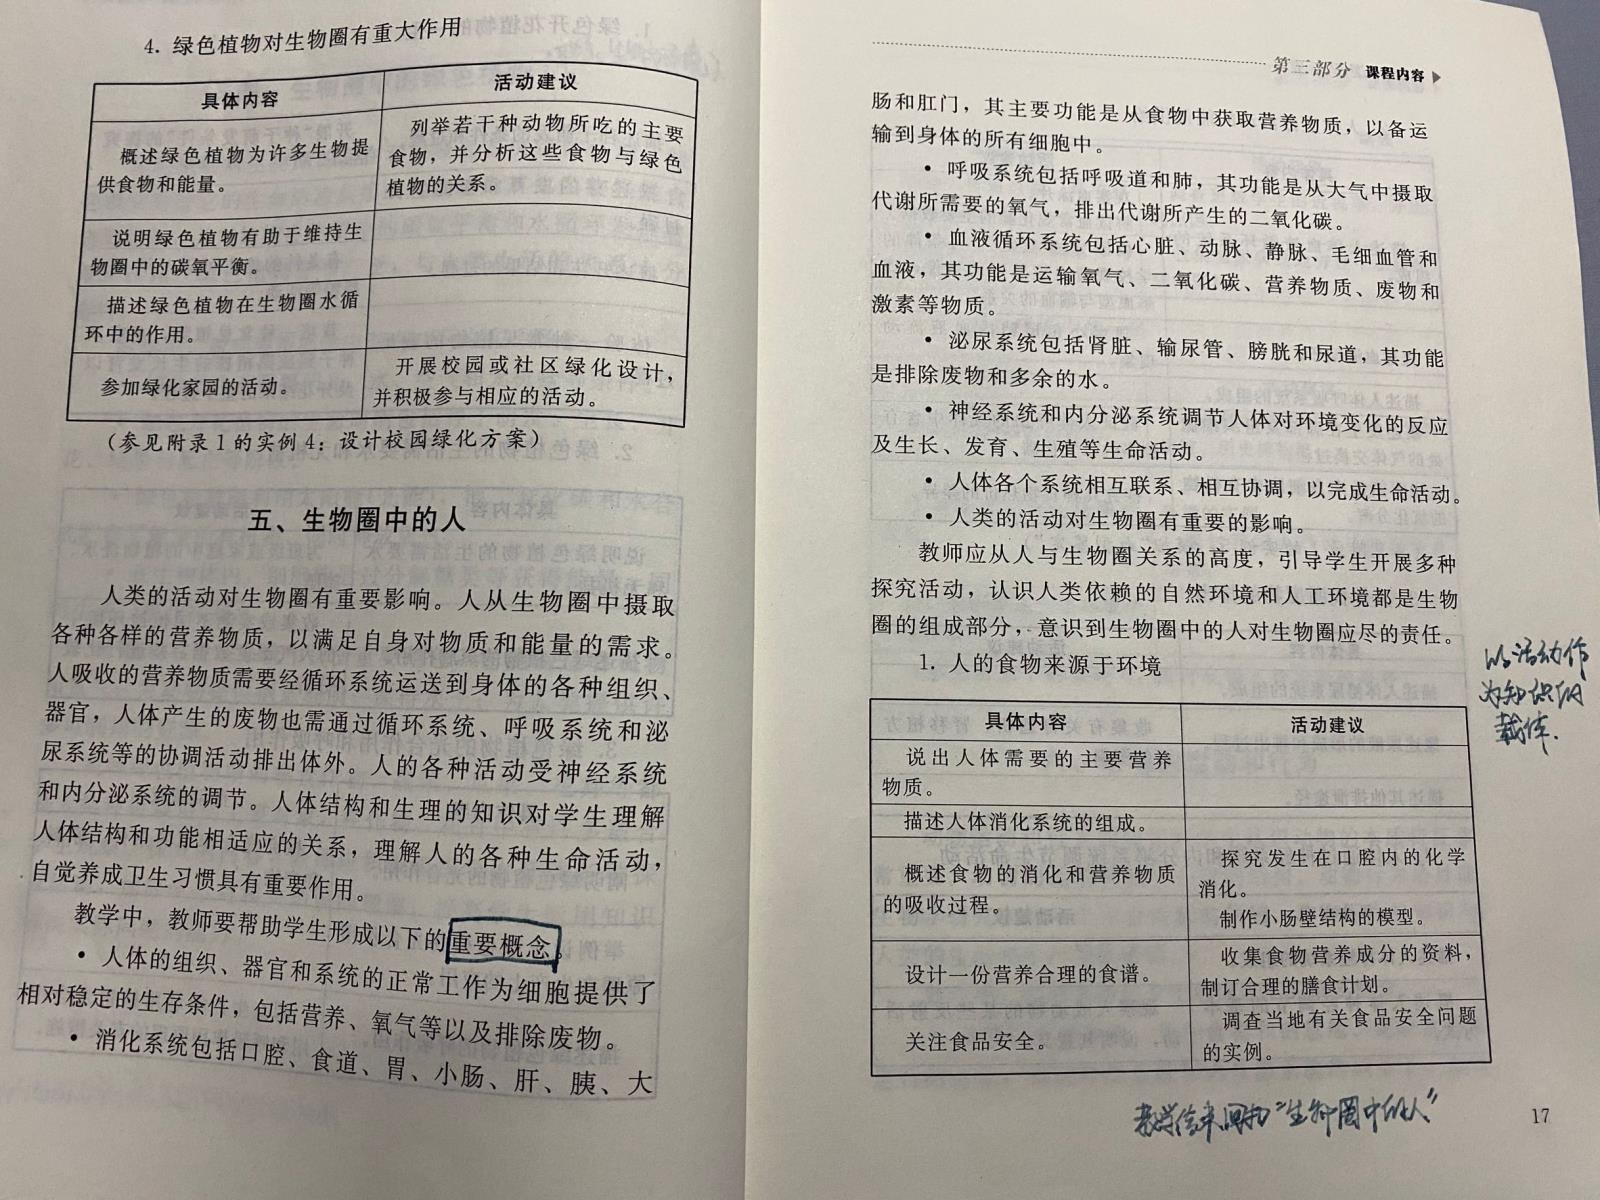 4. 绿色植物对生物圈有重大作用
具体内容
活动建议
概述绿色植物为许多生物提
供食物和能量。
列举若干种动物所吃的主要
食物，并分析这些食物与绿色
植物的关系。
说明绿色植物有助于维持生
物圈中的碳氧平衡。
描述绿色植物在生物圈水循
环中的作用。
参加绿化家园的活动。
开展校园或社区绿化设计，
并积极参与相应的活动。
(参见附录1的实例4：设计校园绿化方案)
五、生物圈中的人
人类的活动对生物圈有重要影响。人从生物圈中摄取
各种各样的营养物质，以满足自身对物质和能量的需求。
人吸收的营养物质需要经循环系统运送到身体的各种组织、
器官，人体产生的废物也需通过循环系统、呼吸系统和泌
尿系统等的协调活动排出体外。人的各种活动受神经系统
和内分泌系统的调节。人体结构和生理的知识对学生理解
人体结构和功能相适应的关系，理解人的各种生命活动，
自觉养成卫生习惯具有重要作用。
教学中，教师要帮助学生形成以下的重要概念。
• 人体的组织、器官和系统的正常工作为细胞提供了
相对稳定的生存条件，包括营养、氧气等以及排除废物。
• 消化系统包括口腔、食道、胃、小肠、肝、胰、大
第三部分 课程内容
肠和肛门，其主要功能是从食物中获取营养物质，以备运
输到身体的所有细胞中。
• 呼吸系统包括呼吸道和肺，其功能是从大气中摄取
代谢所需要的氧气，排出代谢所产生的二氧化碳。
• 血液循环系统包括心脏、动脉、静脉、毛细血管和
血液，其功能是运输氧气、二氧化碳、营养物质、废物和
激素等物质。
• 泌尿系统包括肾脏、输尿管、膀胱和尿道，其功能
是排除废物和多余的水。
• 神经系统和内分泌系统调节人体对环境变化的反应
及生长、发育、生殖等生命活动。
• 人体各个系统相互联系、相互协调，以完成生命活动。
• 人类的活动对生物圈有重要的影响。
教师应从人与生物圈关系的高度，引导学生开展多种
探究活动，认识人类依赖的自然环境和人工环境都是生物
圈的组成部分，意识到生物圈中的人对生物圈应尽的责任。
1. 人的食物来源于环境
以活动作
为知识的
载体.
具体内容
活动建议
说出人体需要的主要营养
物质。
描述人体消化系统的组成。
概述食物的消化和营养物质
的吸收过程。
探究发生在口腔内的化学
消化。
制作小肠壁结构的模型。
设计一份营养合理的食谱。
收集食物营养成分的资料，
制订合理的膳食计划。
关注食品安全。
调查当地有关食品安全问题
的实例。
"生物圈中的人"
17